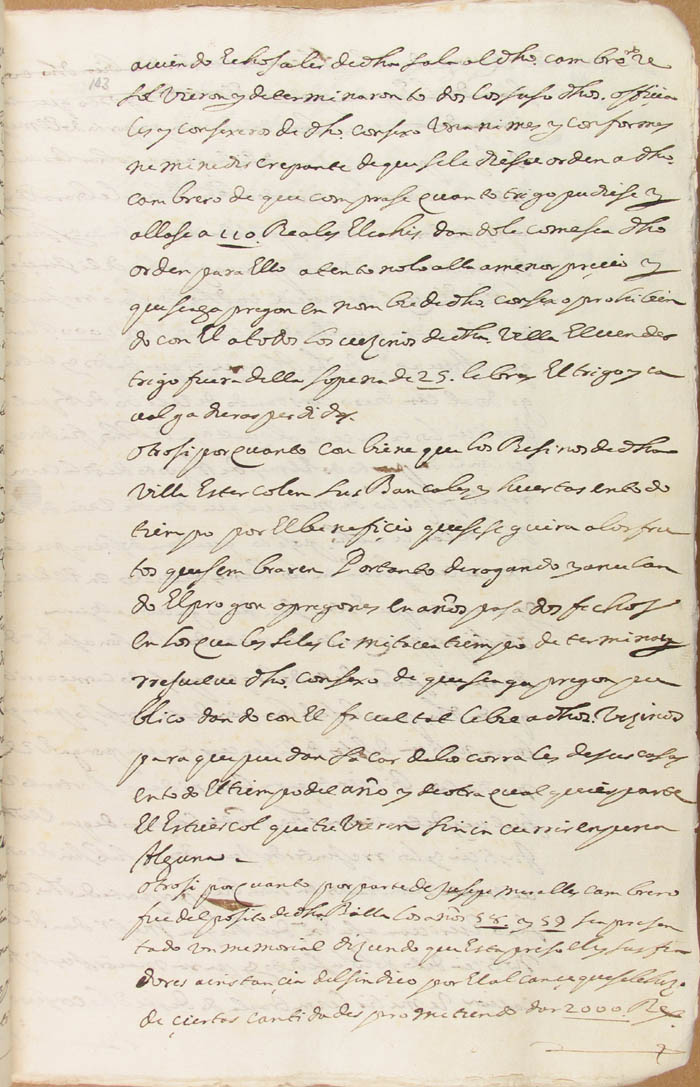 aviendo echo salir de dha sala al dho. cambrero re
143
solvieron y determinaron todos los suso dhos. officia
les y consexeros de dho. consexo Unanimes y conformes
nemine discrepante de que se le diese orden a dho.
cambrero de que comprase quanto trigo pudiese y
allase a 110. Reales El cahis dandole como se a dho
orden para Ello atento no lo alla a menor preçio y
que se aga pregon en nombre de dho. consexo prohibien
do con El a todos los vezinos de dha Villa El vender
trigo fuera della so pena de 25. libras El trigo y ca
valgaduras perdidas.
Otrosi por quanto conbiene que los Besinos de dha
Villa Estercolen sus Bancales y huertas en todo
tiempo por El benefiçio que se seguira a los fru
tos que sembraren Por tanto derogando y anulan
do El pregon o pregones en años pasados fechos
en los quales se les limita en tiempo determina y
rresuelve dho. consexo de que se aga pregon pu
blico dando con El facultat libre a dhos. Vezinos
para que puedan sacar de los corrales de sus casas
en todo El tiempo del año y de otra qualquier parte
El Estiercol que tuvieren sin incurrir en pena
Alguna -
Otrosi por quanto por parte de Jusepe Miralles cambrero
fue del posito de dha Billa los años 58 y 59 se a presen
tado un memorial diziendo que Esta preso El y sus fia
dores a instançia del sindico por El alcançe que se le hizo
de çiertas cantidades prometiendo dar 2000. Rs